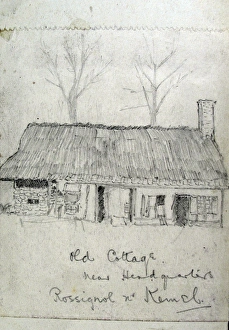 Old Cottage
near Headquarters
Rossignol nr Kemmel.